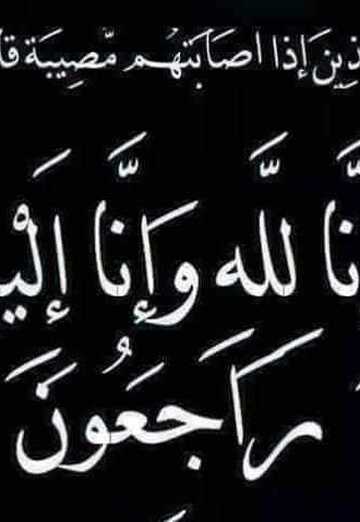 ذِينَ إِذَا اصَابَتهُم مّصِيبَة قا
نَّا لله وَإِنَّا إِلَي
رَاجَعُونَ